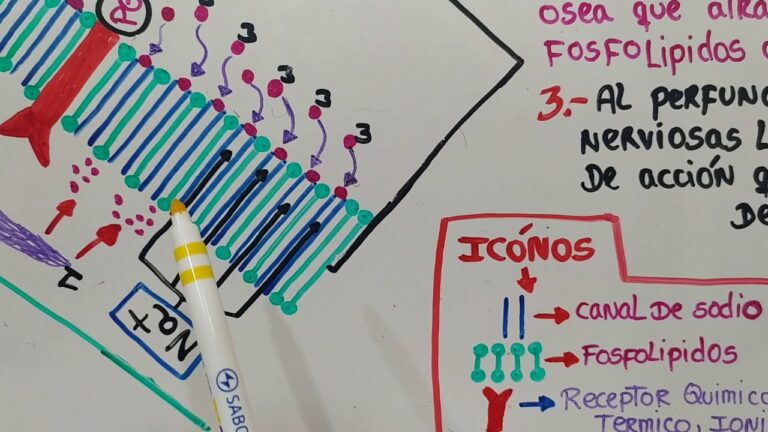 osea que
FOSFOLipidos
3.- AL PERFUN
NERVIOSAS L
De acción q
De
3
3
3
3
3
3
Na+
1
ICÓNOS
canal De sodio
FOSFOLipidos
Receptor Quimico
Termico, IONI
SABO